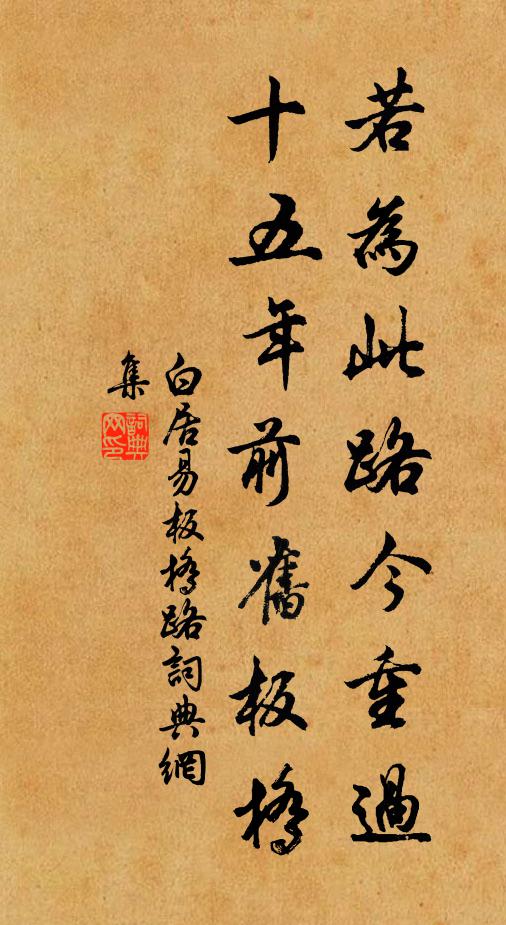 若為此路今重過
十五年前舊板橋
白居易板橋路詞典網
集
詞典
网印